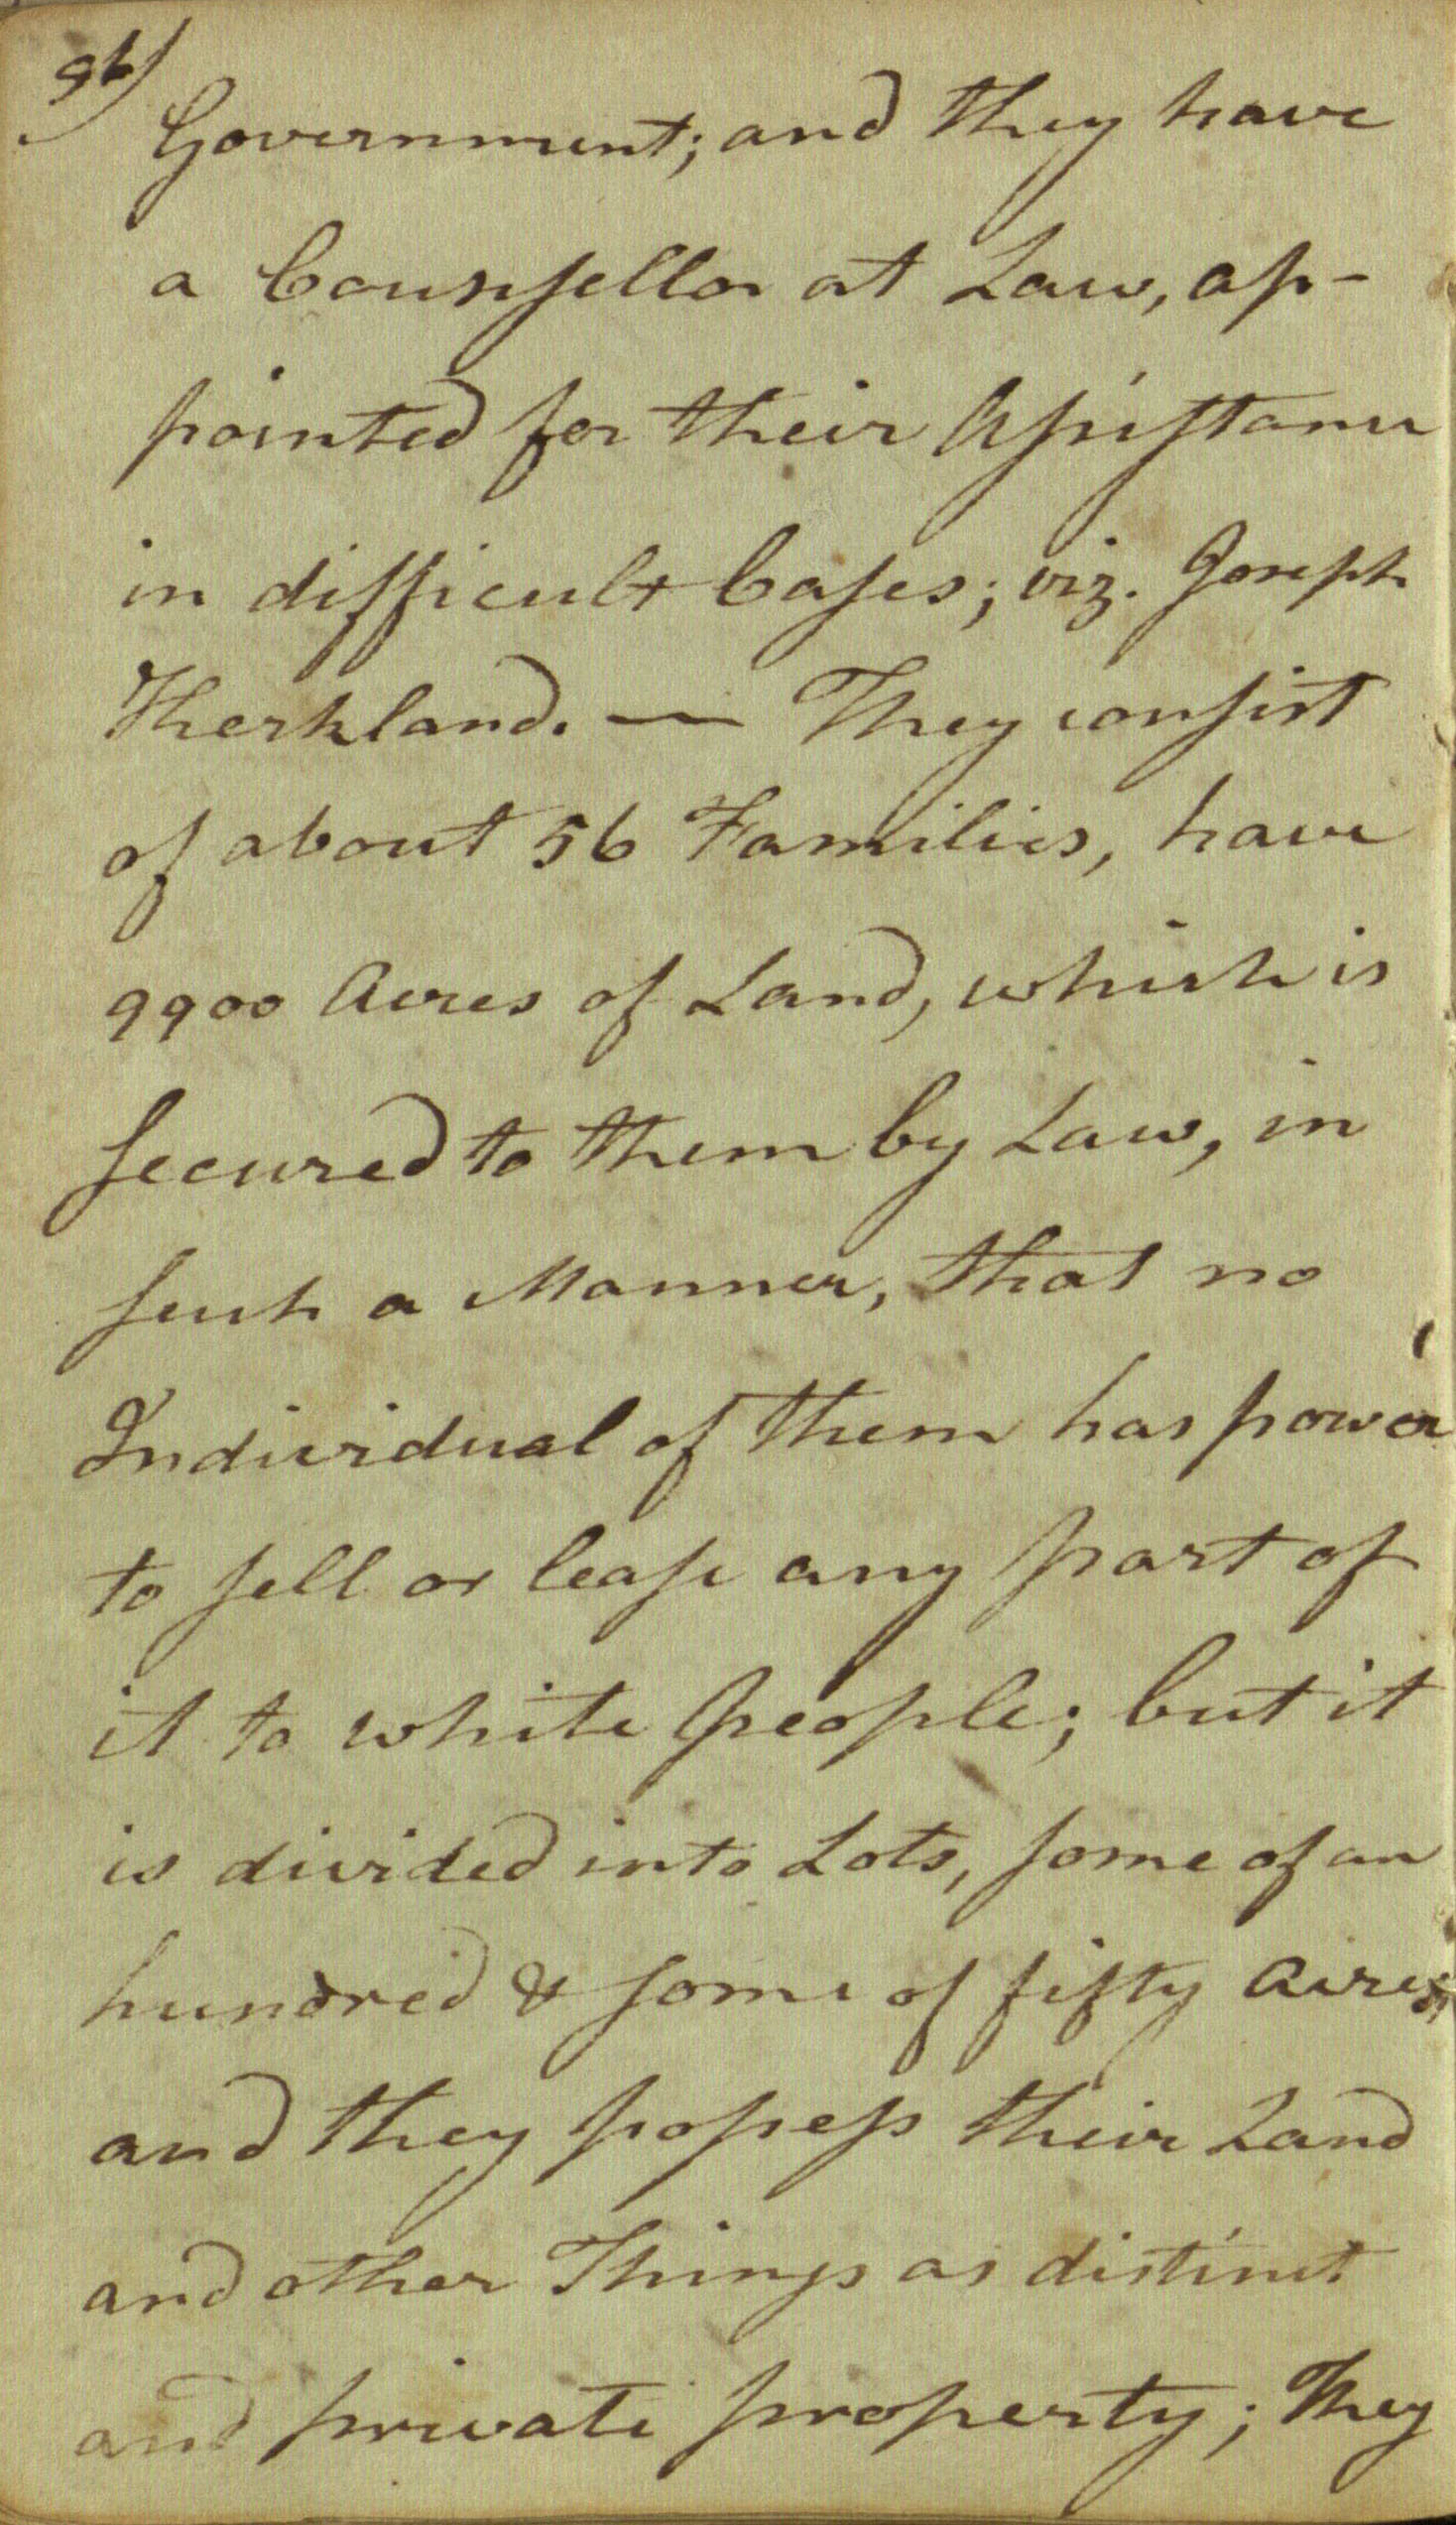 96)
Government; and they have
a Counsellor at Law, ap-
pointed for their Assistance
in difficult Cases; viz. Joseph
Kerkland. — They consist
of about 56 Families, have
9900 Acres of Land, which is
secured to them by Law, in
such a Manner, that no
Individual of them has power
to sell or lease any part of
it to white people; but it
is divided into Lots, some of an
hundred & some of fifty Acres,
and they possess their Land
and other Things as distinct
and private property; They